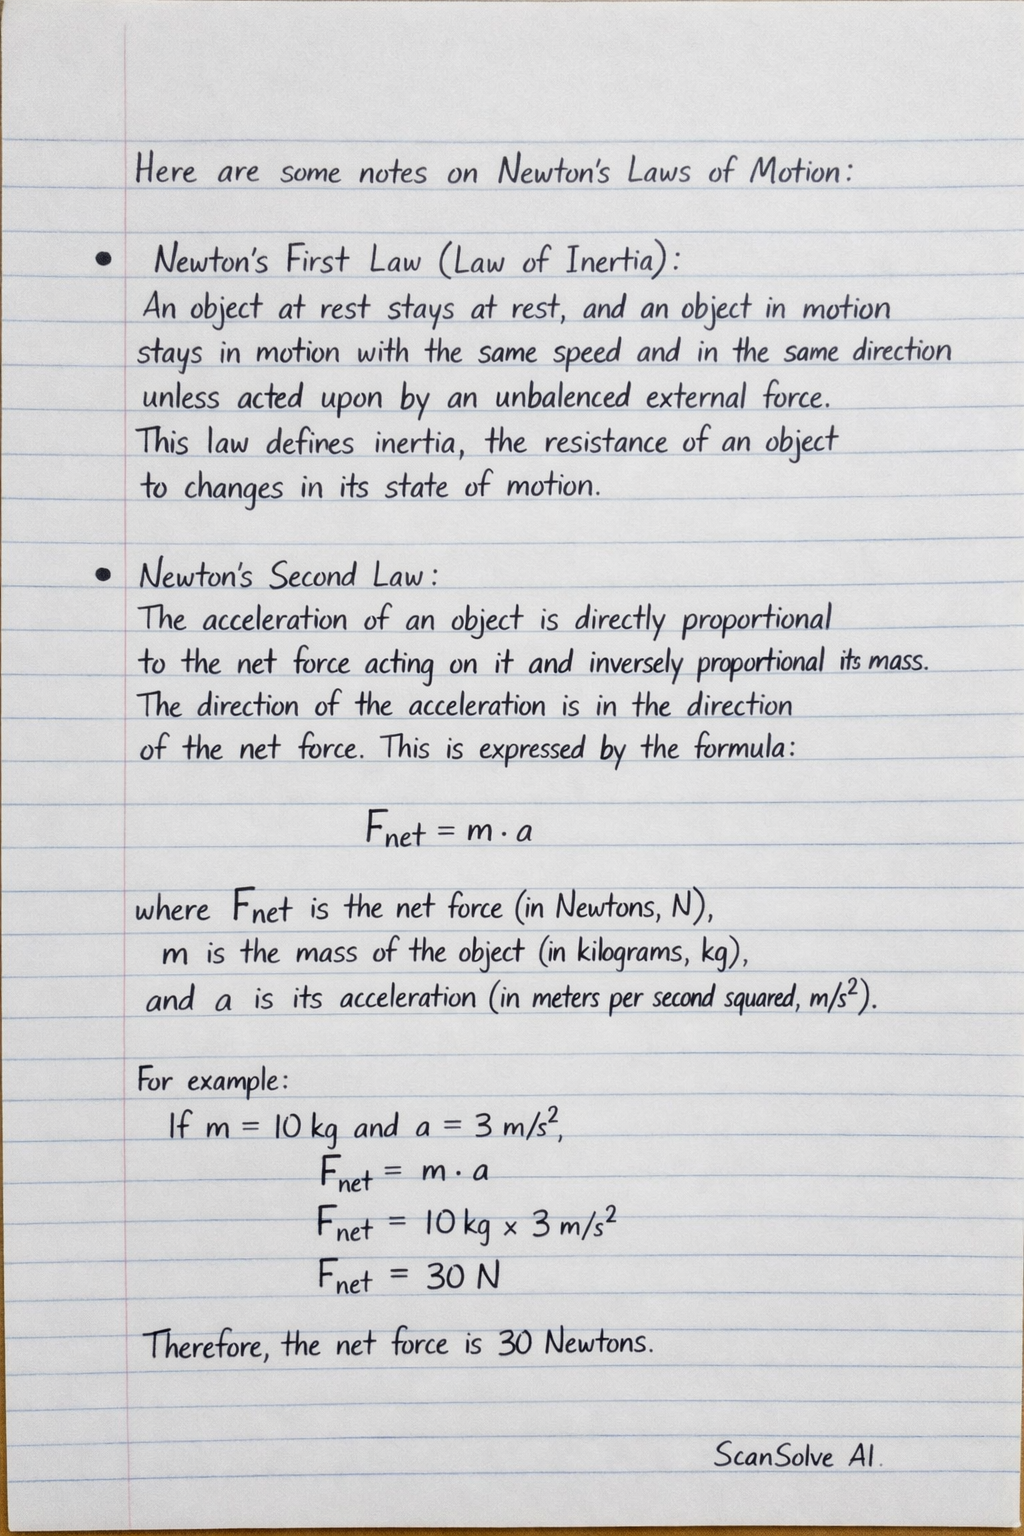 Here are some notes on Newton's Laws of Motion:
• Newton's First Law (Law of Inertia):
An object at rest stays at rest, and an object in motion
stays in motion with the same speed and in the same direction
unless acted upon by an unbalenced external force.
This law defines inertia, the resistance of an object
to changes in its state of motion.
• Newton's Second Law:
The acceleration of an object is directly proportional
to the net force acting on it and inversely proportional its mass.
The direction of the acceleration is in the direction
of the net force. This is expressed by the formula:
F_net = m · a
where F_net is the net force (in Newtons, N),
m is the mass of the object (in kilograms, kg),
and a is its acceleration (in meters per second squared, m/s²).
For example:
If m = 10 kg and a = 3 m/s²,
F_net = m · a
F_net = 10 kg × 3 m/s²
F_net = 30 N
Therefore, the net force is 30 Newtons.
ScanSolve AI.